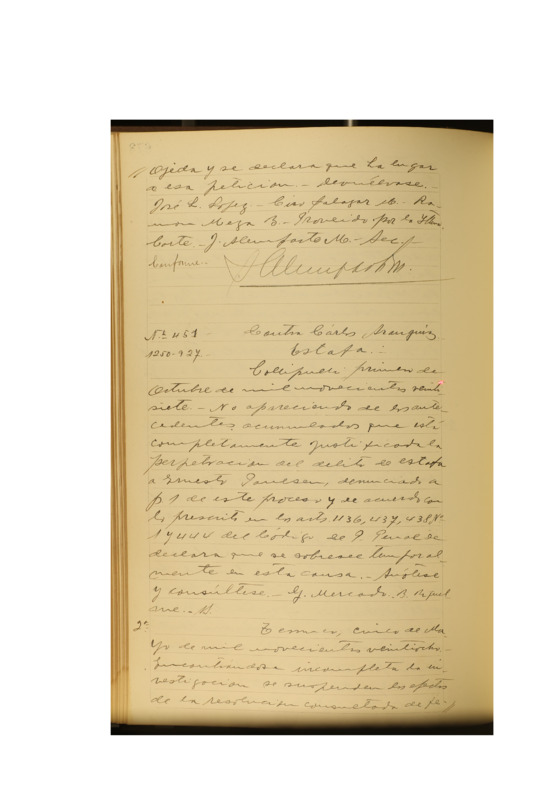 Ojeda y se declara que ha lugar
a esa peticion. - Devuélvase. -
José L. Lopez - Ciro Salazar M. - Ra-
mon Meza B. - Proveido por la Iltma
Corte. - J. Alemparte M. - Sec.
Conforme. -
J Alemparte M.
Nº 451 - Contra Carlos Aranguiz
1250-927 - Estafa. -
Collipulli primero de
Octubre de mil novecientos veinti-
siete. - No apareciendo de los ante-
cedentes acumulados que está
completamente justificada la
perpetracion del delito de estafa
a Ernesto denunciado a
f 1 de este proceso y de acuerdo con
lo prescrito en los arts 436, 437, 438, Nº
1 y 444 del Código de P. Penal se
declara que se sobresee temporal-
mente en esta causa. - Anótese
y consúltese. - G. Mercado. B.
2º Temuco, cinco de Ma-
yo de mil novecientos veintiocho. -
Encontrandose incompleta la in-
vestigacion se suspenden los efectos
de la resolucion consultada de fs.